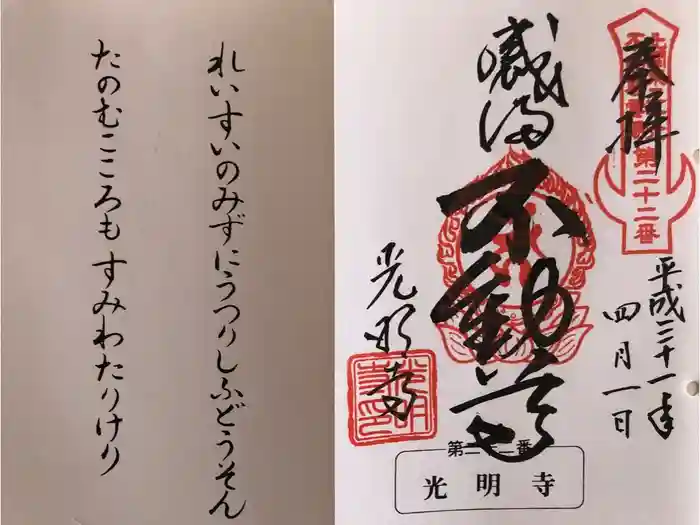 れいすいのみずにうつりしふどうそん
たのむこころもすみわたりけり
奉拝
第二十二番
平成三十一年
四月一日
厳満
不動尊
光明寺
第二十二番
光明寺